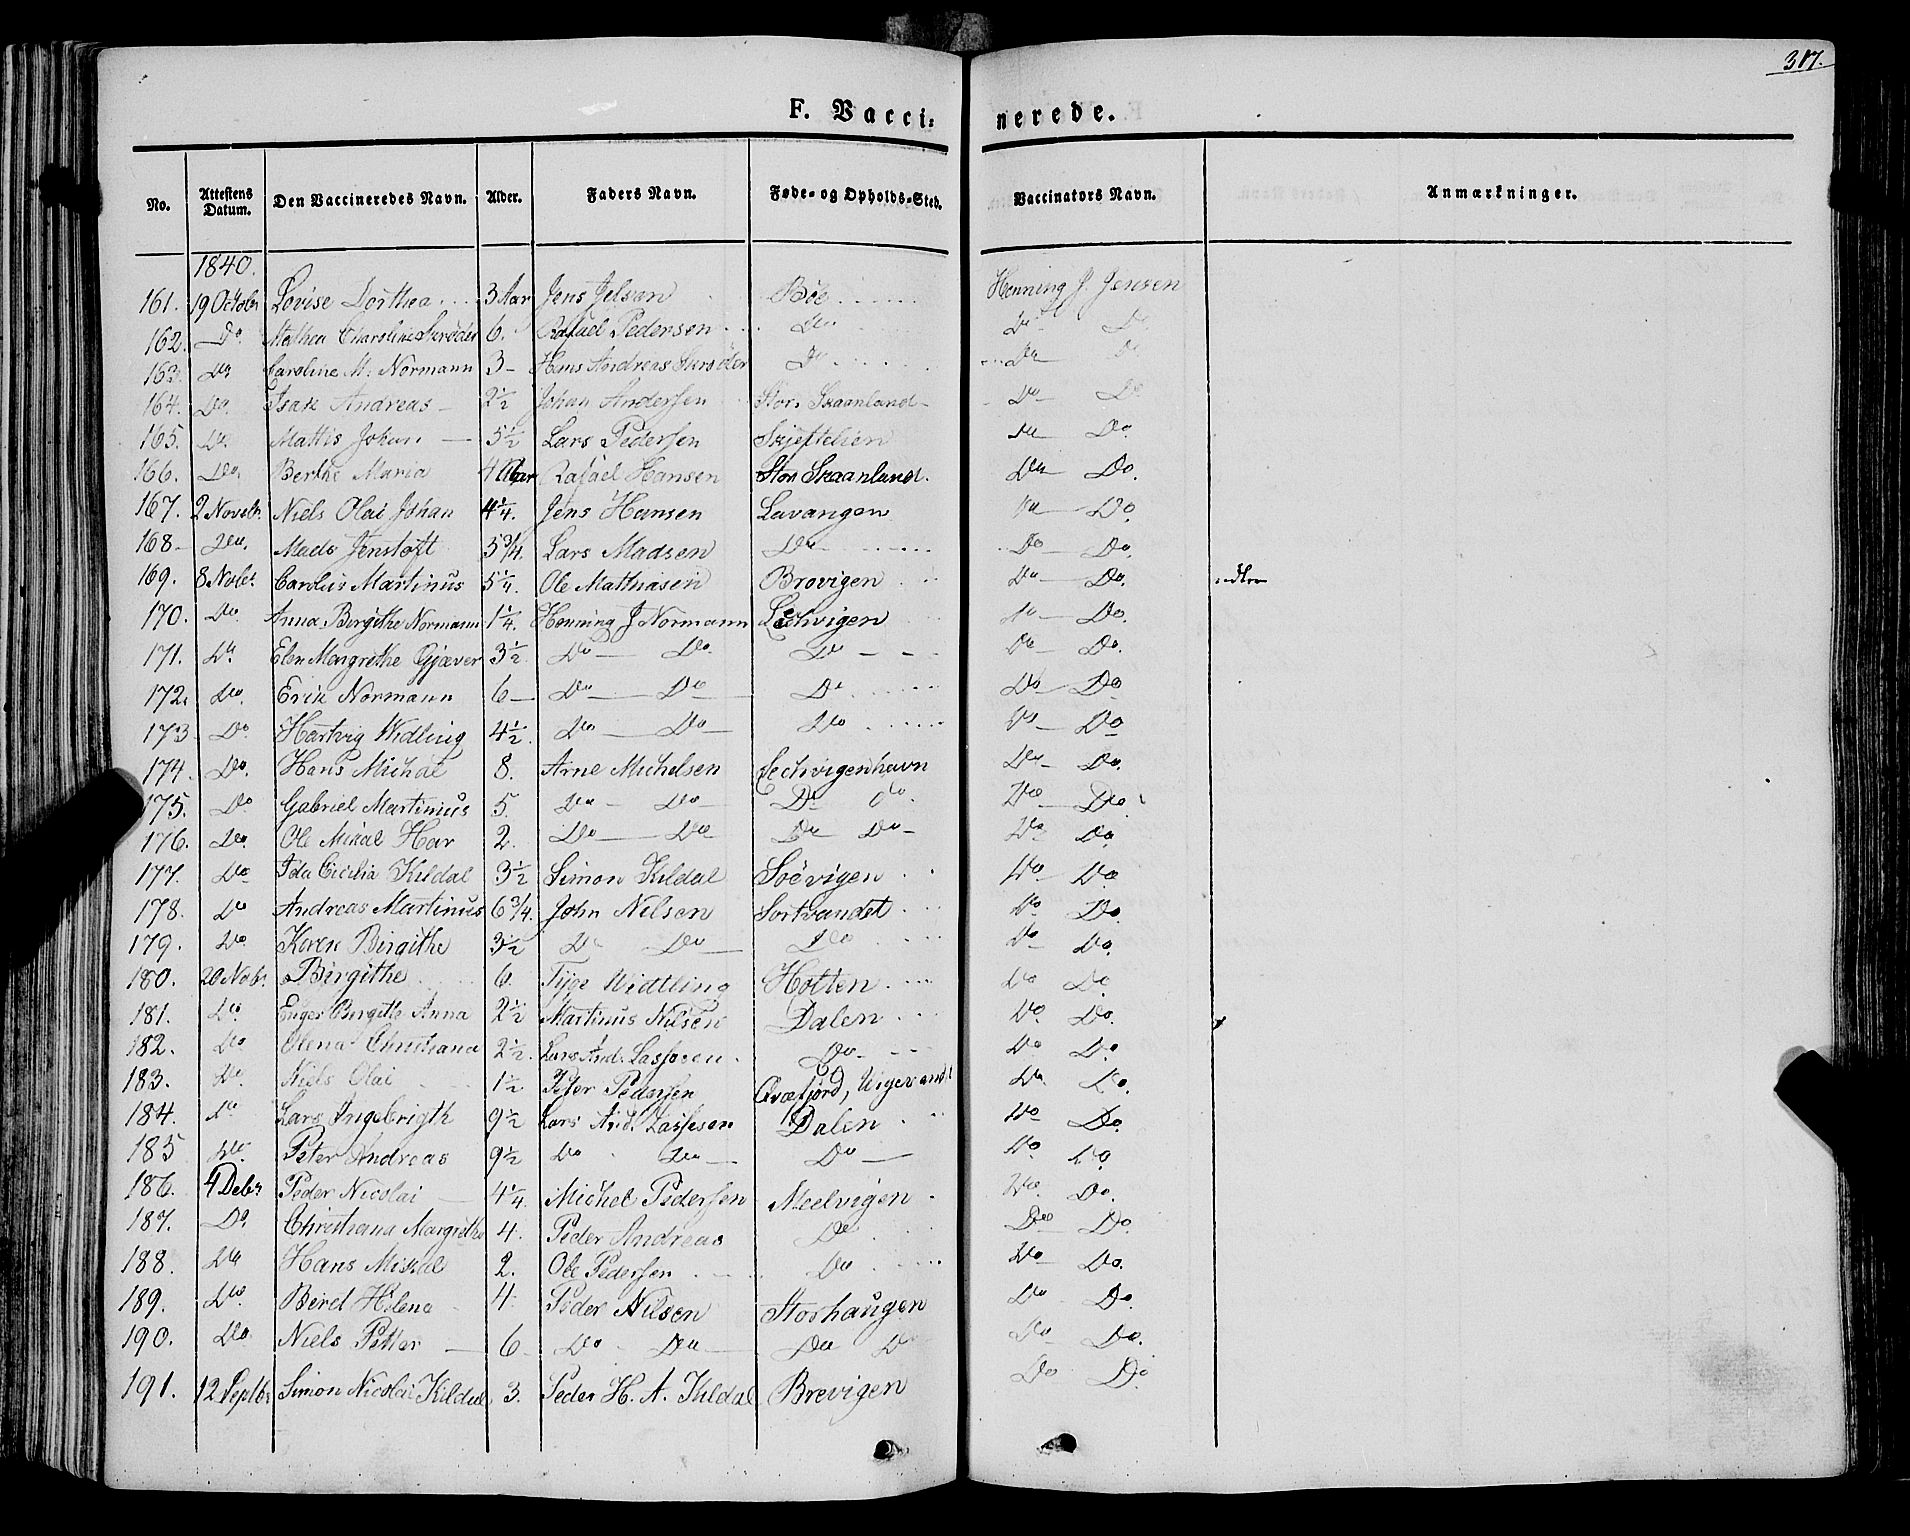 317.
F. Vacci- nerede.
No. Attestens Datum. Den Vaccineredes Navn. Alder. Faders Navn. Føde- og Opholds-Sted. Vaccinators Navn. Anmærkninger.
1840.
161. 19 October Lovise Dorthea 3 Aar Jens Jelsan Böe Henning J Jensen
162. Do. Mathea Charoline Skrøder 6. Rafael Pedersen Do Do Do
163. Do Caroline M. Normann 3 - Hans Andreas Skrøder Do Do Do
164. Do. Isak Andreas 2½ Johan Andersen Stor Skaanland Do Do
165. Do. Mattis Johan 5½ Lars Pedersen Skjeftelien Do Do.
166. Do. Berthe Maria 4 Aar Rafael Hansen Stor Skaanland. Do Do.
167. 2 Novebr. Niels Olai Johan 4¼. Jens Hansen Lavangen Do Do.
168 Do. Mads Jenstoft 5¾. Lars Madsen Do Do Do.
169. 8 Nobr. Carolus Martinus 5¼. Ole Mathiasen Brevigen Do Do.
170. Do Anna Birgithe Normann 1¼. Henning J Normann Lechvigen Do Do.
171. Do Elen Margrethe Gjæver 3½ Do Do. Do Do Do.
172. Do. Erik Normann 6 Do Do Do Do Do
173 Do. Hartvig Widling 4½. Do Do Do Do Do
174. Do. Hans Michal 8. Arne Michelsen Lechvigenhavn Do Do.
175. Do Gabriel Martinus 5. Do Do Do do. Do Do.
176. Do. Ole Mikal Har 2. Do Do Do Do Do Do.
177. Do Ida Cicilia Kildal 3½ Simon Kildal Soevigen Do Do
178. Do Andreas Martinus 6¾. John Nilsen Sortvandet Do Do.
179. Do. Karen Birgithe 3½ Do Do Do Do Do.
180. 20 Nobr. Birgithe 6. Tyge Widtling Holten Do Do.
181. Do. Inger Birgitte Anna 2½ Martinus Nilsen Dalen Do Do.
182. Do Olena Christiana 2½. Lars And. Lassesen. Do Do Do.
183. Do. Niels Olai 1½ Peter Pedersen Qvæfjord, Uigevandt Do. Do.
184. Do Lars Ingebrigth 9½ Lars And. Lassesen Dalen Do Do.
185 Do. Peter Andreas 9½ Do Do Do Do Do.
186. 4 Debr Peder Nicolai 4¼ Michel Pedersen Meelvigen Do. Do.
187. Do. Christiana Margrethe 4. Peder Andreas Do Do Do
188. Do Hans Mikal 2. Ole Pedersen Do Do Do.
189. Do. Berel Helena 4. Peder Nilsen Storhaugen Do Do.
190. Do Niels Petter 6 Do Do Do Do Do Do.
191. 12 Septbr Simon Nicolai Kildal 3. Peder H. A. Kildal Brevigen Do Do